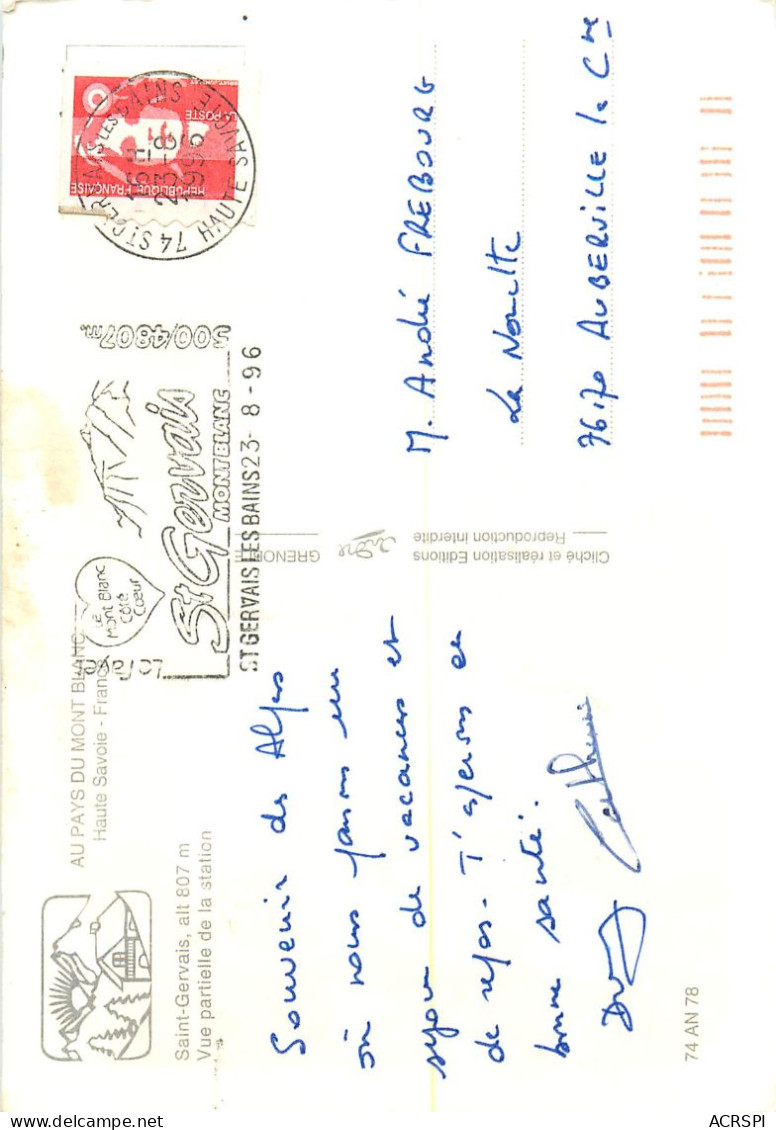 AU PAYS DU MONT BLANC
Haute Savoie - France
Saint-Gervais, alt 807 m
Vue partielle de la station
Souvenir des Alpes
où nous passons un
séjour de vacances et
de repos. T'espérons en
bonne santé.
Catherine
74 AN 78
Cliché et réalisation Editions
Reproduction interdite
GRENOBLE
LA POSTE
REPUBLIQUE FRANÇAISE
74 ST GERVAIS LES BAINS
16 H
23-8
1996
HAUTE SAVOIE
500/4807m.
St Gervais
MONT BLANC
Le
Mont Blanc
Côté
Coeur
Le Fayet
ST GERVAIS LES BAINS 23-8-96
M. André FREBOURG
La Nouette
76170 AUBERVILLE la Cne
ACRSPI